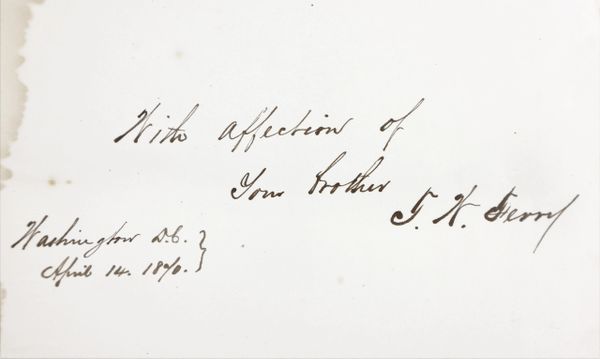 With affection of
Your brother
T. W. Ferry
Washington D.C. }
April 14. 1870. }